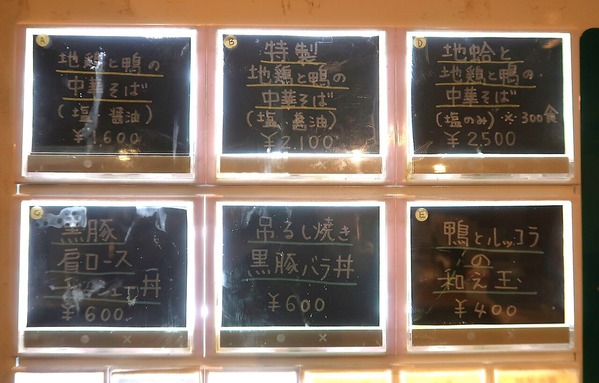 A
地鶏と鴨の
中華そば
(塩・醤油)
¥1,600
B
特製
地鶏と鴨の
中華そば
(塩・醤油)
¥2,100
D
地蛤と
地鶏と鴨の
中華そば
(塩のみ)・※・300食
¥2500
C
黒豚
肩ロース
チャーシュー丼
¥600
吊るし焼き
黒豚バラ丼
¥600
E
鴨とルッコラ
の
和え玉
¥400